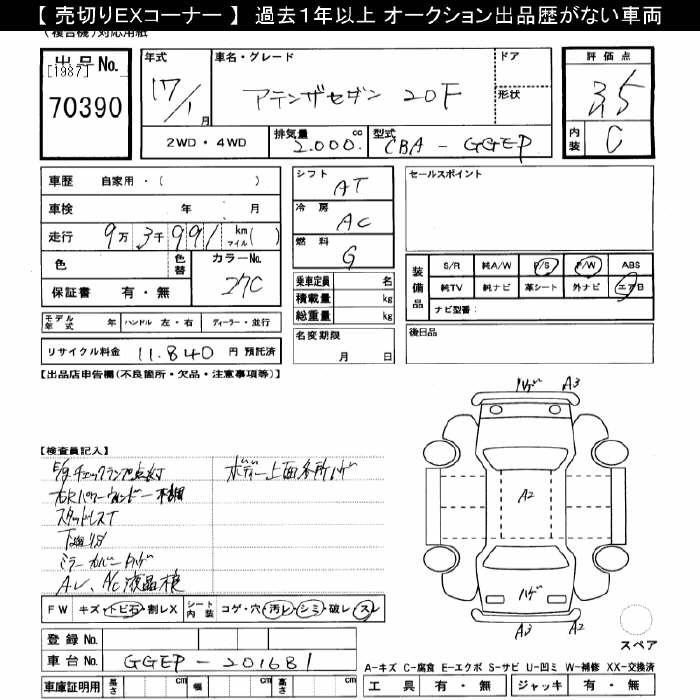 【 売切りEXコーナー 】 過去１年以上 オークション出品歴がない車両
(複合機)対応用紙
出品No.
[1987]
70390
年式
17/1月
車名・グレード
アテンザセダン 20F
ドア
形状
評価点
3.5
内装
C
2WD・4WD
排気量
2.000. cc
型式
CBA - GGEP
車歴 自家用・( )
車検 年 月
走行 9万3千991 km マイル( )
色
色替
カラーNo.
27C
保証書 有・無
シフト
AT
冷房
AC
燃料
G
セールスポイント
装備品
S/R 純A/W P/S P/W ABS
純TV 純ナビ 革シート 外ナビ エアB
ナビ型番:
乗車定員 名
積載量 kg
総重量 kg
モデル年式 年 ハンドル 左・右 ディーラー・並行
名変期限
月 日
後日品
リサイクル料金 11.840 円 預託済
【出品店申告欄(不良箇所・欠品・注意事項等)】
【検査員記入】
E/gチェックランプ点灯
ボディー上面各所ハゲ
スタッドレスT
ハゲ A3
A2
ハゲ
A3 A2
FW キズ・トビ石・割レX
シート内装 コゲ・穴・汚レ・シミ・破レ・スレ
登録 No.
車台 No. GGEP-201681
車庫証明用 長さ cm 幅 cm 高さ cm
スペア
A-キズ C-腐食 E-エクボ S-サビ U-凹ミ W-補修 XX-交換済
工具 有・無 ジャッキ 有・無